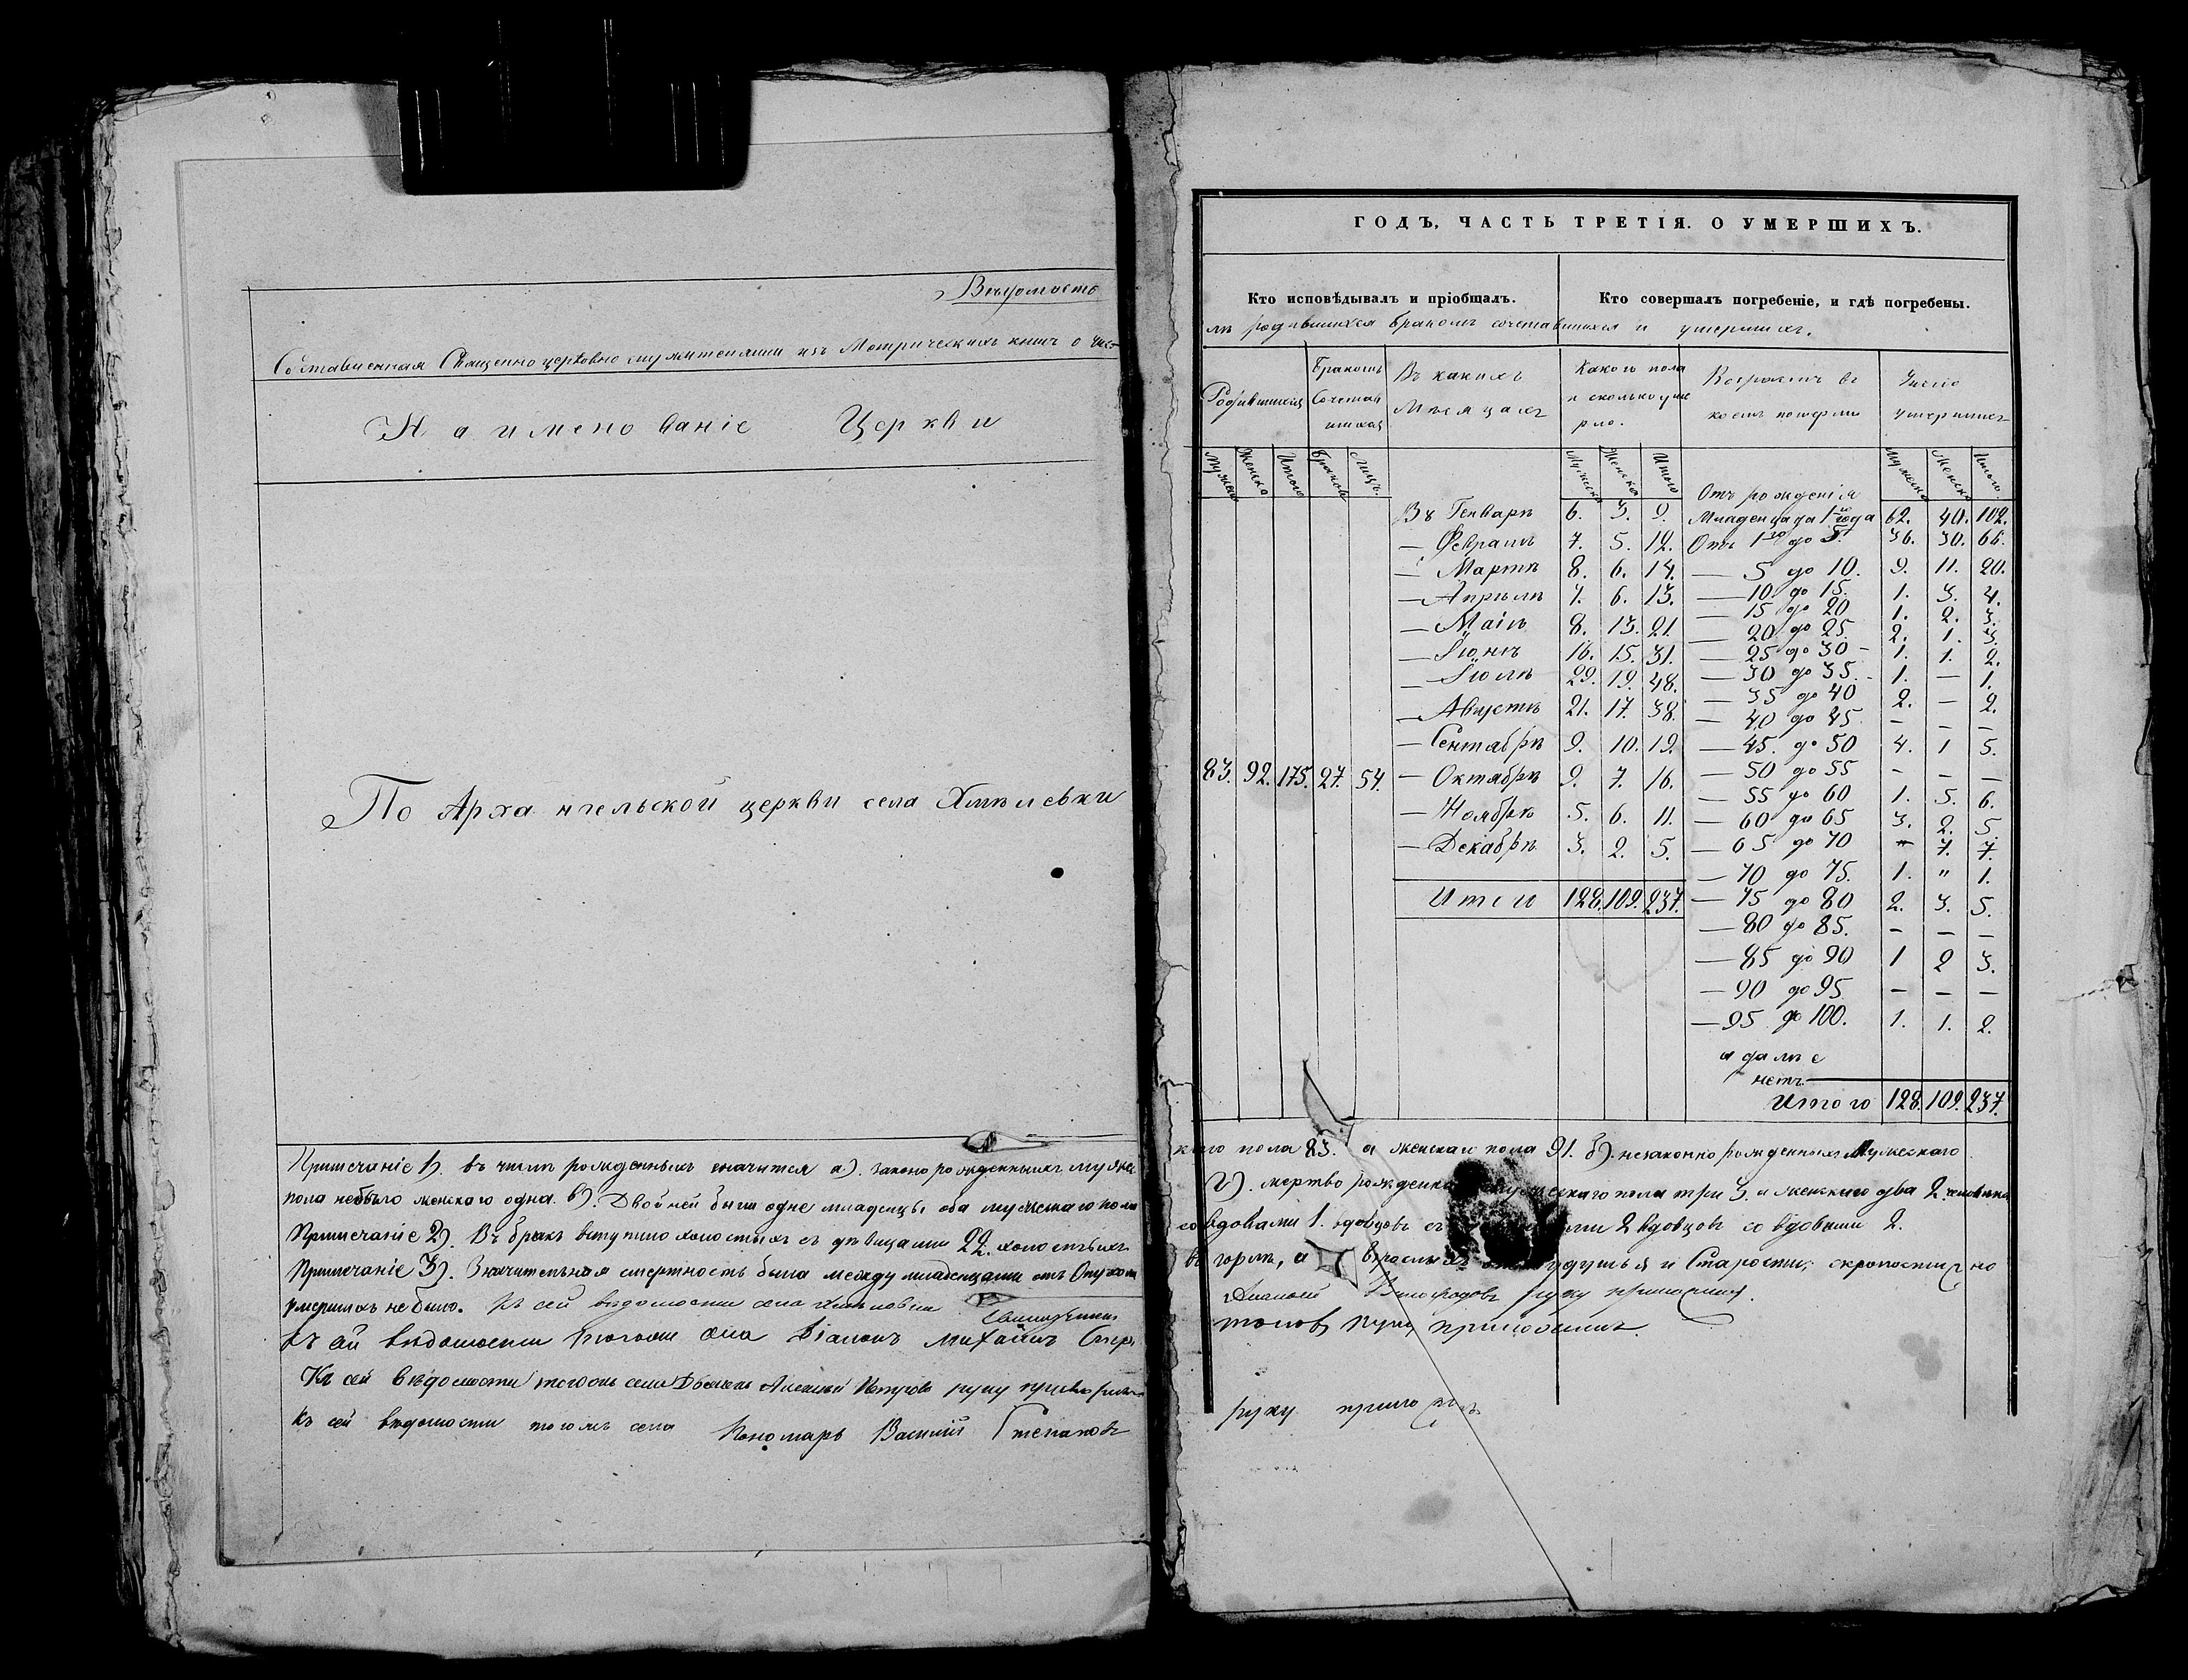 Вѣдомость
Составленная Священно церковно служителями изъ Метрическихъ книгъ о чис-
Наименованіе Церкви
По Архангельской церкви села Хмѣлевки
Примечаніе 1). въ числѣ рожденныхъ значится а). законо рожденныхъ мужес
пола небыло женскаго одна. в). Двойней были одне младенцы оба мужескаго пола
Примечаніе 2). Въ бракъ вступило холостыхъ съ девицами 22. холостыхъ
Примечаніе 3). Значительная смертность была между младенцами отъ Опухоли
умершихъ не было. Къ сей ведомости села Хмѣлевки Священникъ
Къ сей вѣдомости тогожъ села Діаконъ Михаилъ
Къ сей вѣдомости тогожъ села Дьячекъ Алексей Петровъ руку приложилъ
Къ сей вѣдомости тогожъ села Пономарь Василій Степановъ
ГОДЪ, ЧАСТЬ ТРЕТІЯ. О УМЕРШИХЪ.
Кто исповѣдывалъ и пріобщалъ. Кто совершалъ погребеніе, и гдѣ погребены.
лѣ родившихся бракомъ сочетавшихся и умершихъ.
Родившихся Бракомъ Сочетавшихся Въ какихъ Мѣсяцахъ Какого пола и сколько умерло. Возрастъ въ коемъ померли Число умершихъ
Мужеска Женска Итого Браков Лицъ. Мужеска Женска Итого Мужеска Женска Итого.
Отъ рожденія
Въ Генварѣ 6. 3. 9. Младенца до 1 года 62. 40. 102.
— Февралѣ 7. 5. 12. Отъ 1 до 5. 36. 30. 66.
— Мартѣ 8. 6. 14. — 5 до 10. 9. 11. 20.
— Апрѣлѣ 7. 6. 13. — 10 до 15. 1. 3. 4.
— 15 до 20 1. 2. 3.
— Маіѣ 8. 13. 21. — 20 до 25. 2. 1. 3.
— Іюнѣ 16. 15. 31. — 25 до 30 — 1. 1. 2.
— Іюлѣ 29. 19. 48. — 30 до 35. 1. — 1.
— 35 до 40 2. — 2.
— Августѣ 21. 17. 38. — 40 до 45. — — —
— Сентябрѣ 9. 10. 19. — 45. до 50 4. 1 5.
83. 92. 175. 27. 54. — Октябрѣ 9. 7. 16. — 50 до 55 — — —
— 55 до 60 1. 5. 6.
— Ноябрѣ 5. 6. 11. — 60 до 65 3. 2. 5.
— Декабрѣ 3. 2. 5. — 65 до 70 — 7. 7.
— 70 до 75. 1. " 1.
Итого 128. 109. 237. — 75 до 80 2. 3. 5.
— 80 до 85. — — —
— 85 до 90 1 2 3.
— 90 до 95 — — —
— 95 до 100. 1. 1. 2.
а далѣе
нетъ
Итого 128. 109. 237.
каго пола 83. а женскаго пола 91. б). незаконно рожденныхъ Мужескаго
г). мертво рожденн мужескаго пола три 3. и женскаго два 2.
со вдовами 1. вдовцовъ съ 2 вдовцовъ со вдовыми 2.
въ горлѣ, а взрослыхъ удушья и Старости, скоропостижно
руку приложилъ.
руку приложилъ.
руку приложилъ